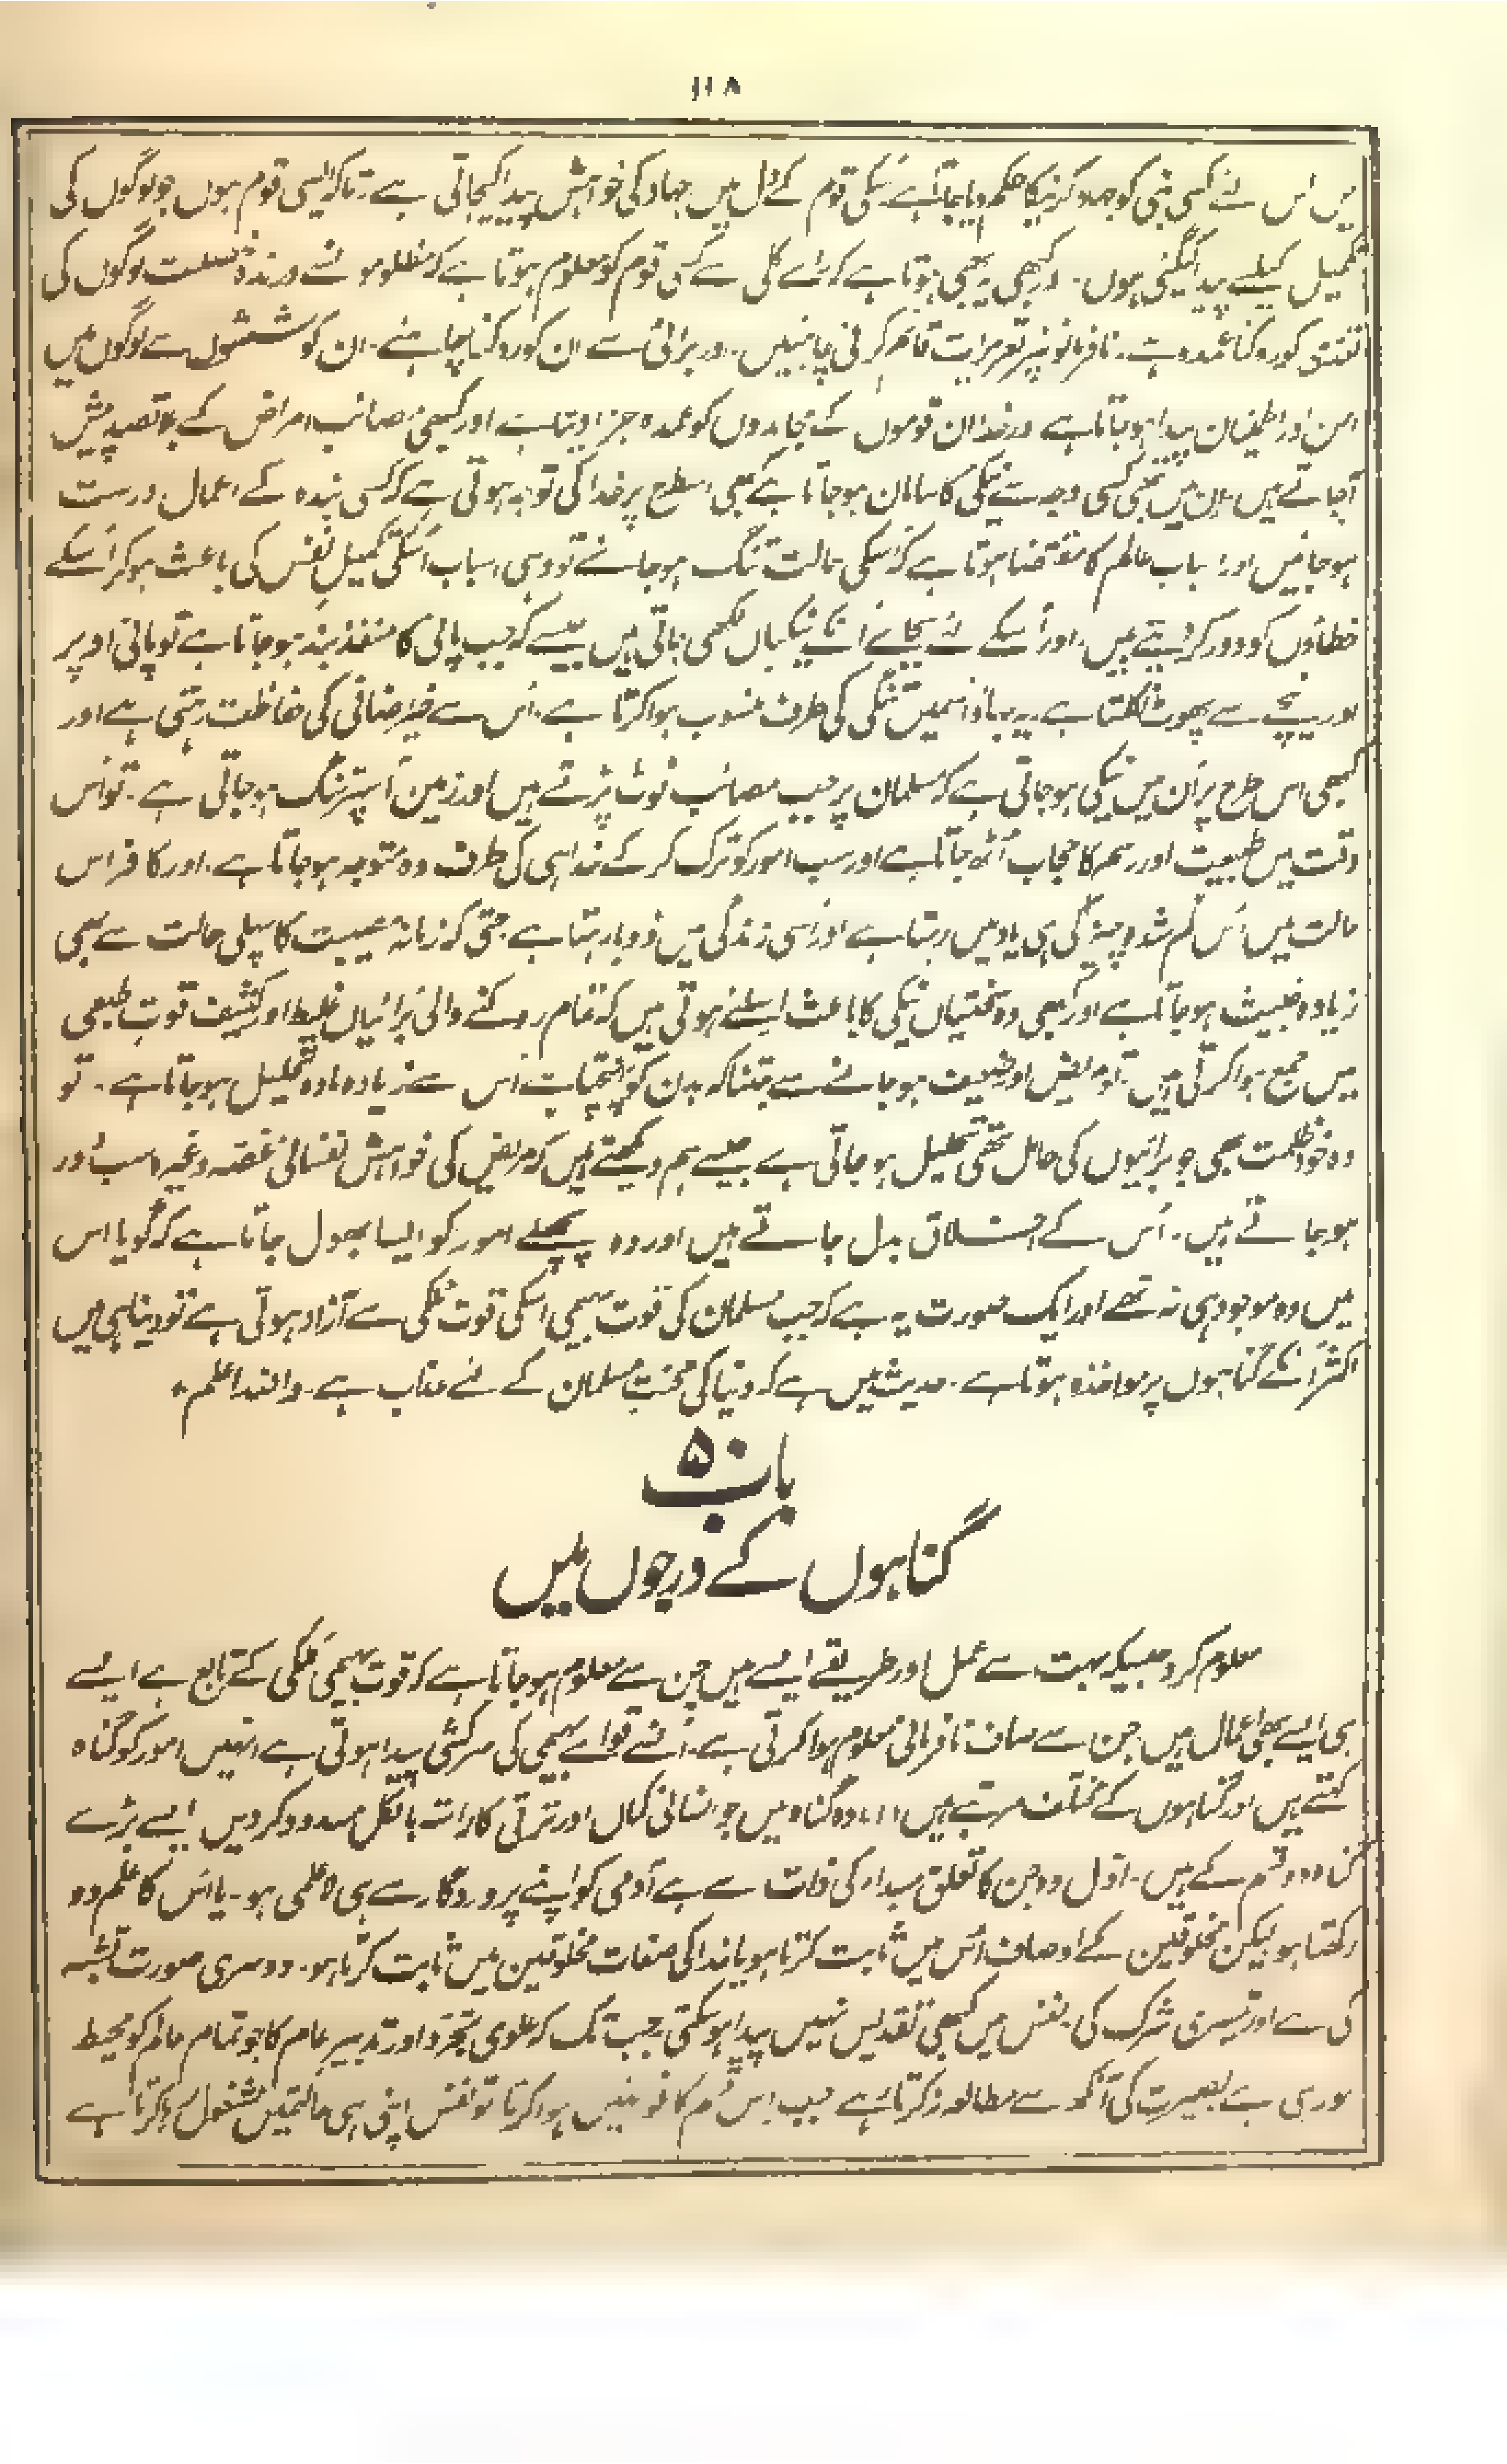 ۱۱۸
پس اس لئے کسی نبی کو جہاد کرنیکا حکم دیا جاتا ہے کسی قوم کے دل میں جہاد کی خواہش پیدا کیجاتی ہے تاکہ ایسی قوم ہوں جو لوگوں کی
تکمیل کیلئے پیدا کیگئی ہوں۔ اور کبھی یہ بھی ہوتا ہے کہ رائے کلی سے کسی قوم کو معلوم ہوتا ہے کہ مظلوموں سے درندہ خصلت لوگوں کی
کو روکنا عمدہ ہے۔ نافرمانونپر تعزیرات قائم کرنی چاہئیں۔ اور برائی سے ان کو روکنا چاہئے۔ ان کوششوں سے لوگوں میں
امن اور اطمینان پیدا ہو جاتا ہے اور خدا ان قوموں کے مجاہدوں کو عمدہ جزا دیتا ہے اور کبھی مصائب امراض کے بلا قصد پیش
آجاتے ہیں ان میں بھی کسی وجہ سے نیکی کا سامان ہو جاتا ہے کبھی اسطرح پر خدا کی توجہ ہوتی ہے کہ کسی بندہ کے اعمال درست
ہو جائیں اور اسباب عالم کا مقتضا ہوتا ہے کہ اسکی حالت تنگ ہو جائے تو وہی اسباب اسکی تکمیل نفس کی باعث ہو کر اُسکے
خطاؤں کو دور کر دیتے ہیں۔ اور اُسکے لئے بجائے اُنکے نیکیاں لکھی جاتی ہیں جیسے کہ جب پانی کا منفذ بند ہو جاتا ہے تو پانی اوپر
اور نیچے سے پھوٹ نکلتا ہے۔ یہ بہاؤ اسمیں تنگی کی طرف منسوب ہوا کرتا ہے۔ اُس سے خیر اضافی کی حفاظت رہتی ہے اور
کبھی اس طرح پر اُن میں نیکی ہو جاتی ہے کہ مسلمان پر جب مصائب ٹوٹ پڑتے ہیں اور زمین اُسپر تنگ ہو جاتی ہے۔ تو اُس
وقت میں طبیعت اور رسم کا حجاب اُٹھ جاتا ہے اور سب امور کو ترک کر کے خدا ہی کی طرف وہ متوجہ ہو جاتا ہے۔ اور کافر اس
حالت میں اُس گم شدہ چیز کی ہی یاد میں رہتا ہے اور اُسی زندگی میں ڈوبا رہتا ہے حتیٰ کہ زمانۂ مصیبت کا پہلی حالت سے بھی
زیادہ خبیث ہو جاتا ہے اور کبھی وہ سختیاں نیکی کا باعث اسلئے ہوتی ہیں کہ تمام روکنے والی بُرائیاں غلیظ اور کثیف قوتِ طبعی
میں جمع ہوا کرتی ہیں تو مریض اور ضعیف ہو جانے سے جتنا کہ بدن کو پہنچتا ہے اُس سے زیادہ مادہ تحلیل ہو جاتا ہے۔ تو
وہ خود ظلمت بھی جو برائیوں کی حامل تھی تحلیل ہو جاتی ہے جیسے ہم دیکھتے ہیں کہ مریض کی خواہش نفسانی غصہ وغیرہ سب دور
ہو جاتے ہیں۔ اُس کے اخلاق بدل جاتے ہیں اور وہ پچھلے امور کو ایسا بھول جاتا ہے کہ گویا اس
میں وہ موجود ہی نہ تھے اور ایک صورت یہ ہے کہ جب مسلمان کی قوت بہیمی اسکی قوت ملکی سے آزاد ہوتی ہے تو دنیا ہی میں
اکثر اُنکے گناہوں پر مواخذہ ہوتا ہے۔ حدیث میں ہے کہ دنیا کی محنت مسلمان کے لئے عذاب ہے۔ واللہ اعلم
باب ۵
گناہوں کے درجوں میں
معلوم کرو جیسیکہ بہت سے عمل اور طریقے ایسے ہیں جن سے معلوم ہو جاتا ہے کہ قوت بہیمی ملکی کے تابع ہے ایسے
ہی ایسے بھی اعمال ہیں جن سے صاف نافرمانی معلوم ہوا کرتی ہے۔ اُنسے قوائے بہیمی کی سرکشی پیدا ہوتی ہے انہیں امور کو گناہ
کہتے ہیں اور گناہوں کے مختلف مرتبے ہیں (۱) وہ گناہ ہیں جو انسانی کمال اور ترقی کا راستہ بالکل مسدود کر دیں ایسے بڑے
گناہ دو قسم کے ہیں۔ اوّل وہ جن کا تعلق مبدا کی ذات سے ہے آدمی کو اپنے پروردگار سے ہی لاعلمی ہو۔ یا اُس کا علم وہ
رکھتا ہو لیکن مخلوقین کے اوصاف اُس میں ثابت کرتا ہو یا خدا کی صفات مخلوقین میں ثابت کرتا ہو۔ دوسری صورت تشبہ
کی ہے اور تیسری شرک کی۔ نفس میں کبھی تقدیس نہیں پیدا ہو سکتی جب تک کہ علوی تجرد اور تدبیر عام کا جو تمام عالم کو محیط
ہو رہی ہے بصیرت کی آنکھ سے مطالعہ نہ کرتا رہے جب اس قسم کا خوض نہیں ہوا کرتا تو نفس اپنی ہی حالتمیں مشغول رہا کرتا ہے